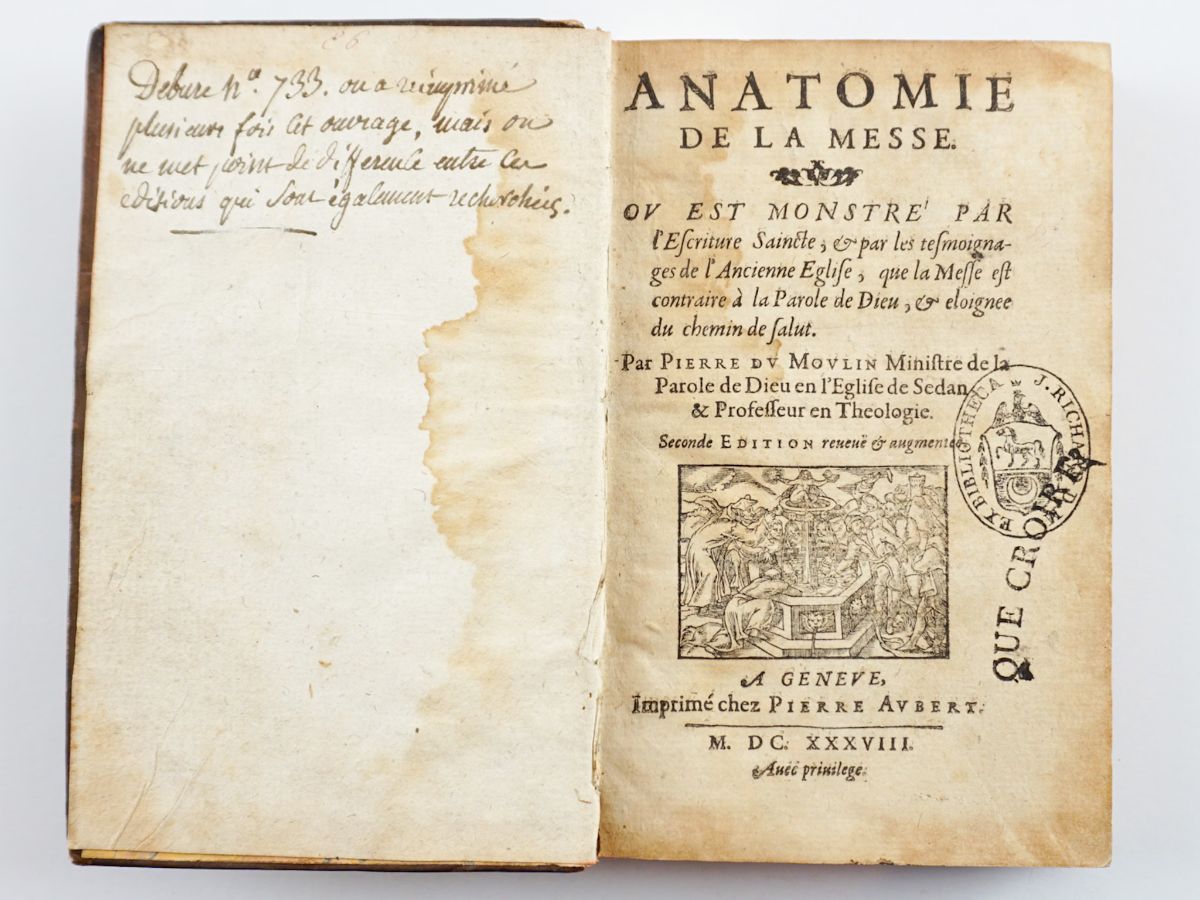 86
Debure n°. 733. on a réimprimé
plusieurs fois cet ouvrage, mais on
ne met point de difference entre les
editions qui sont également recherchées.
ANATOMIE
DE LA MESSE.
OV EST MONSTRE' PAR
l'Eſcriture Saincte, & par les teſmoigna-
ges de l'Ancienne Egliſe, que la Meſſe eſt
contraire à la Parole de Dieu, & eloignee
du chemin de ſalut.
Par PIERRE DV MOVLIN Miniſtre de la
Parole de Dieu en l'Egliſe de Sedan
& Profeſſeur en Theologie.
Seconde EDITION reveuë & augmentee
EX BIBLIOTHECA J. RICHARD
QUE CROIRE?
A GENEVE,
Imprimé chez PIERRE AVBERT.
M. DC. XXXVIII.
Avec privilege.